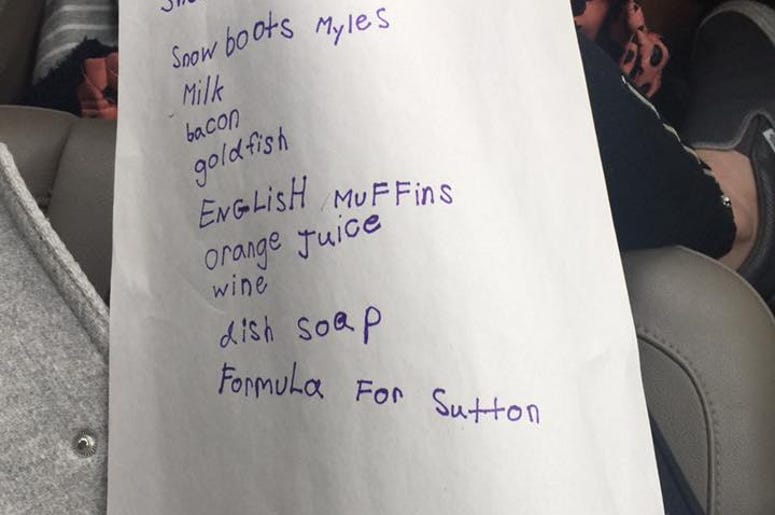 Snow boots Myles
Milk
bacon
goldfish
ENGLisH MuFFins
orange Juice
wine
dish soap
FormuLa For Sutton